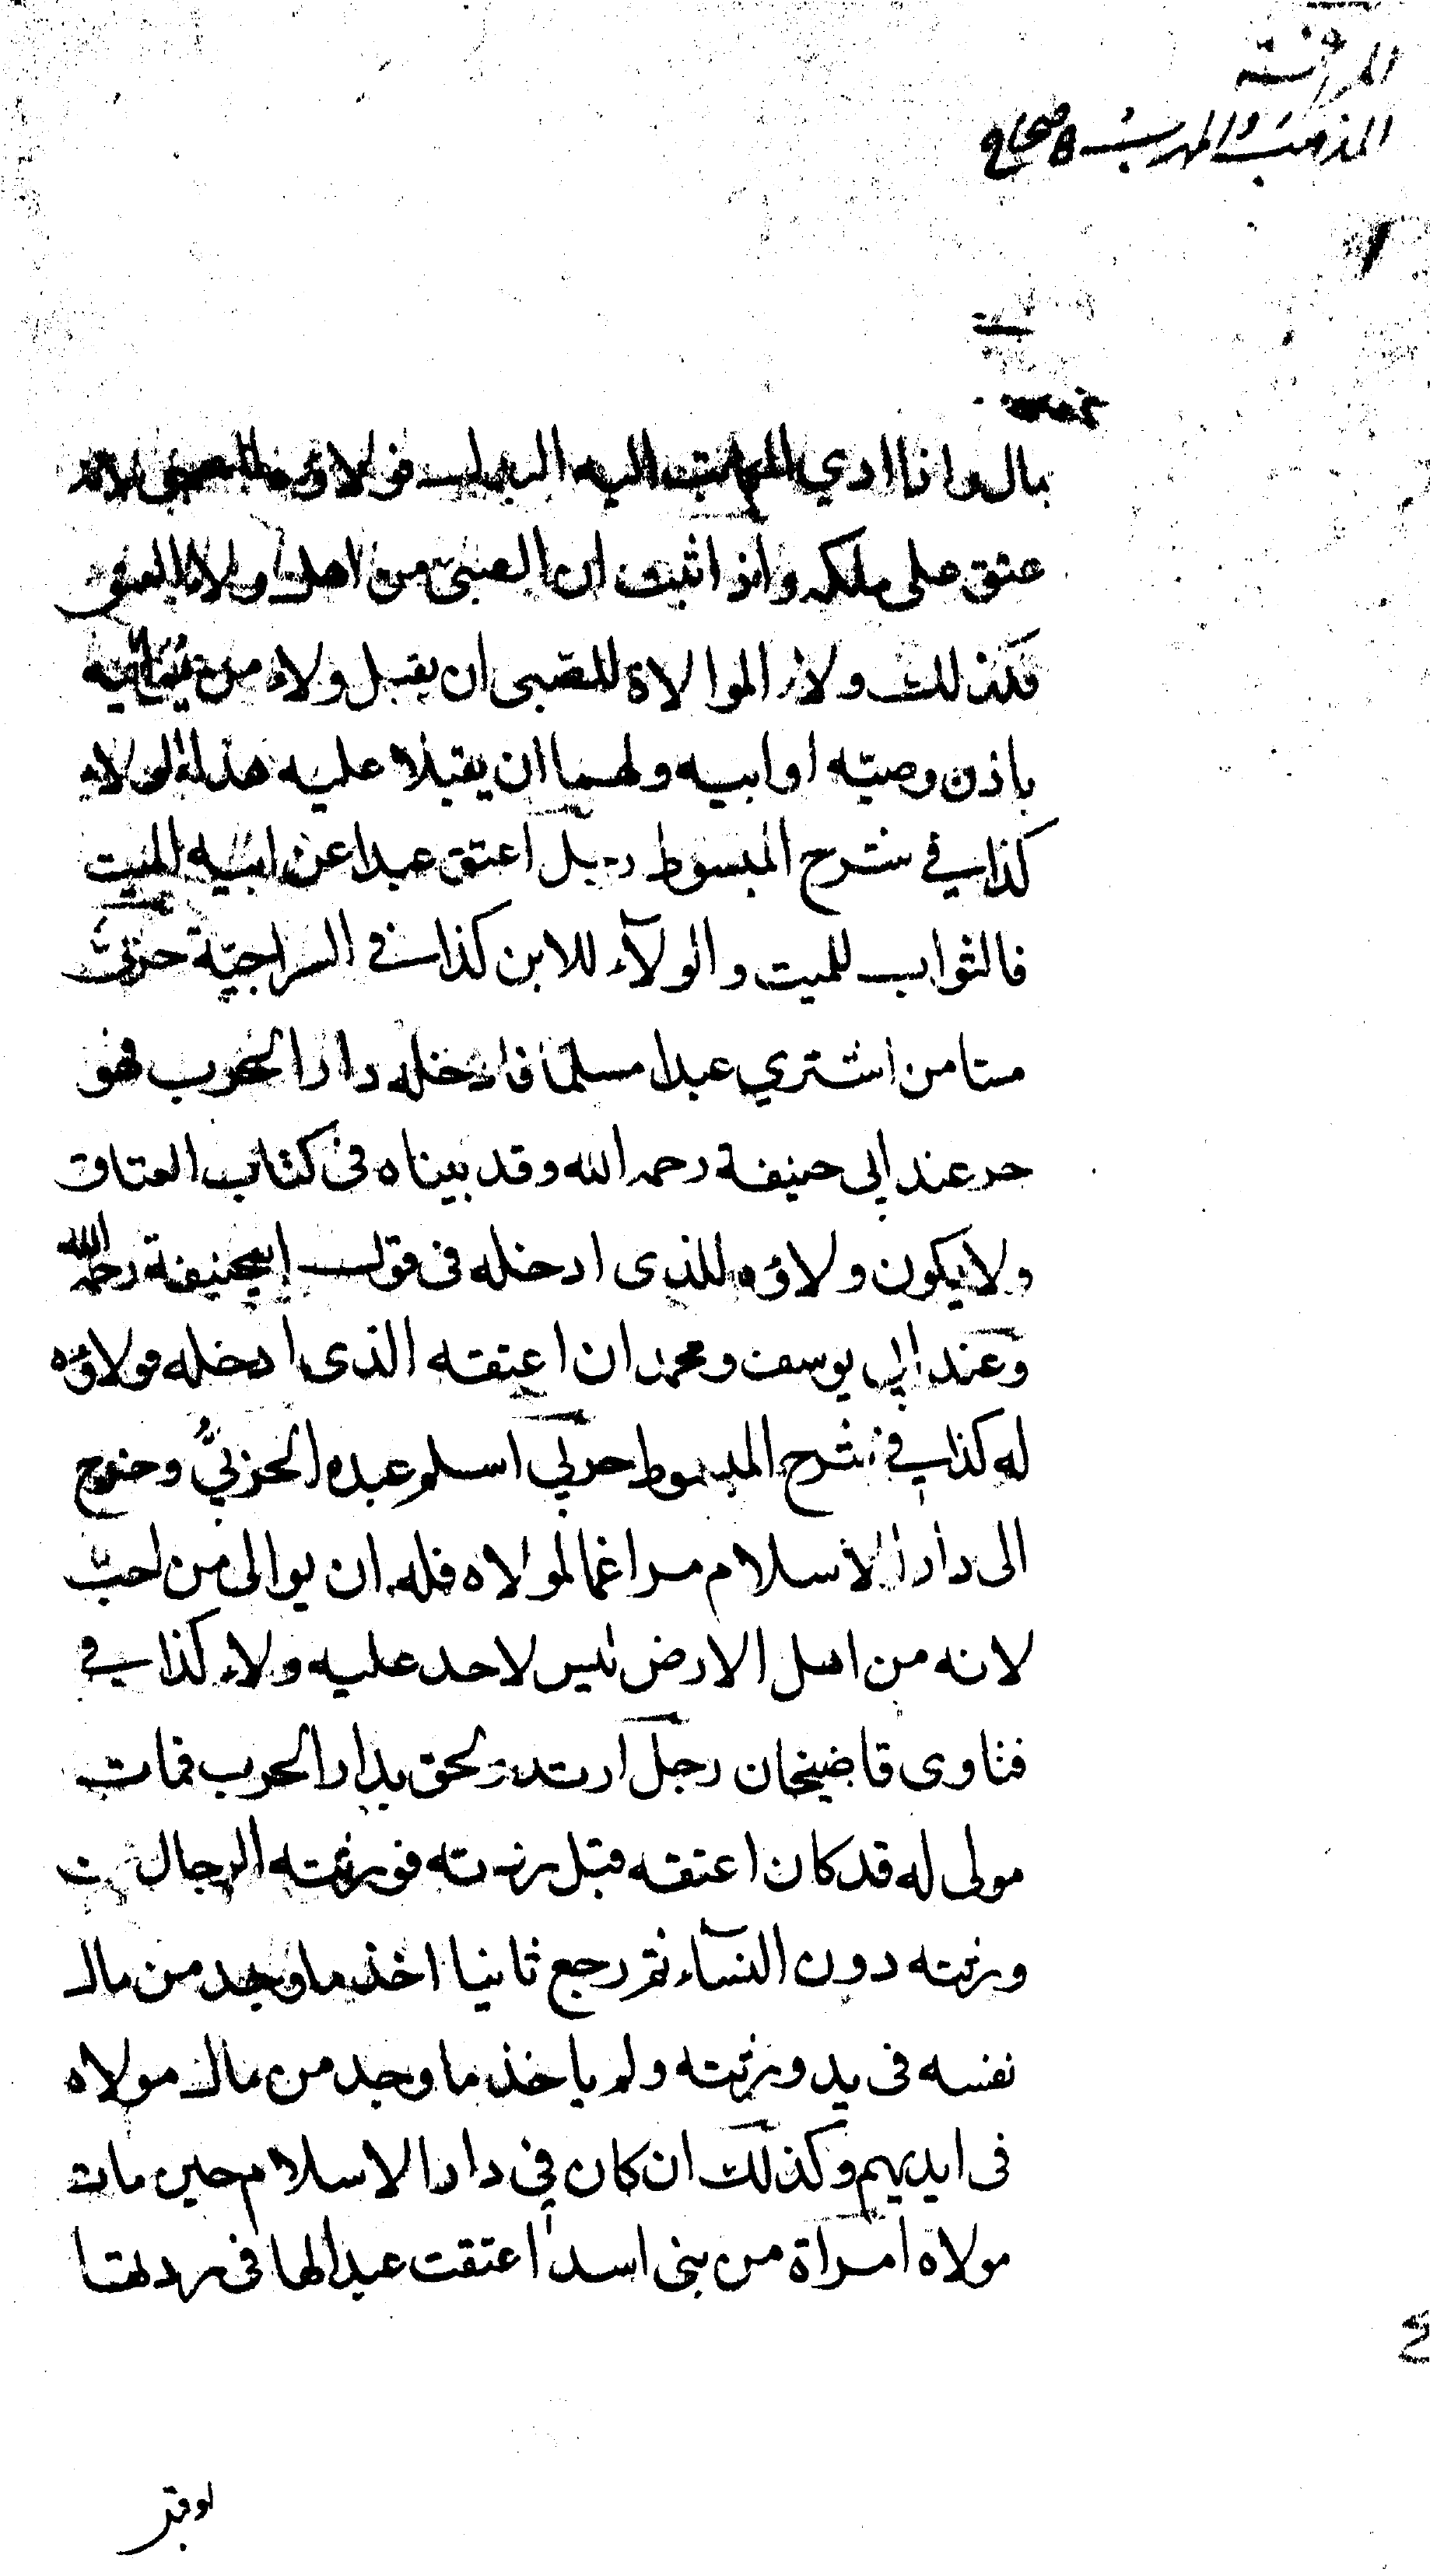 المذهب والمهرب صحاح
بمال وانا ادي المكاتب اليه البدل فولاؤه للصبي لانه
عتق على ملكه واذا ثبت ان الصبى من اهل ولاء العتق
فكذلك ولاء الموالاة للصبى ان يقبل ولاء من
باذن وصيّه او ابيه ولهما ان يقبلا عليه هذا الولاء
كذا في شرح المبسوط رجل اعتق عبدا عن ابيه الميت
فالثواب للميت والولآء للابن كذا في السراجيّة حربىّ
مستامن اشتري عبدا مسلما فادخله دار الحرب فهو
حر عند ابى حنيفة رحمه الله وقد بيناه فى كتاب العتاق
ولا يكون ولاؤه للذى ادخله فى قول ابيحنيفة رحمه الله
وعند ابى يوسف ومحمد ان اعتقه الذى ادخله فولاؤه
له كذا في شرح المبسوط حربي اسلم عبده الحربيُّ وخرج
الى دار الاسلام مراغما لمولاه فله ان يوالى من احبّ
لانه من اهل الارض ليس لاحد عليه ولاء كذا في
فتاوى قاضيخان رجل ارتد ولحق بدار الحرب فمات
مولى له قد كان اعتقه قبل ردته فورثته الرجال من
ورثته دون النسآء ثم رجع ثانيا اخذ ما وجد من مال
نفسه فى يد ورثته ولم ياخذ ما وجد من مال مولاه
فى ايديهم وكذلك ان كان فى دار الاسلام حين مات
مولاه امراة من بنى اسد اعتقت عبدا لها فى ردتها